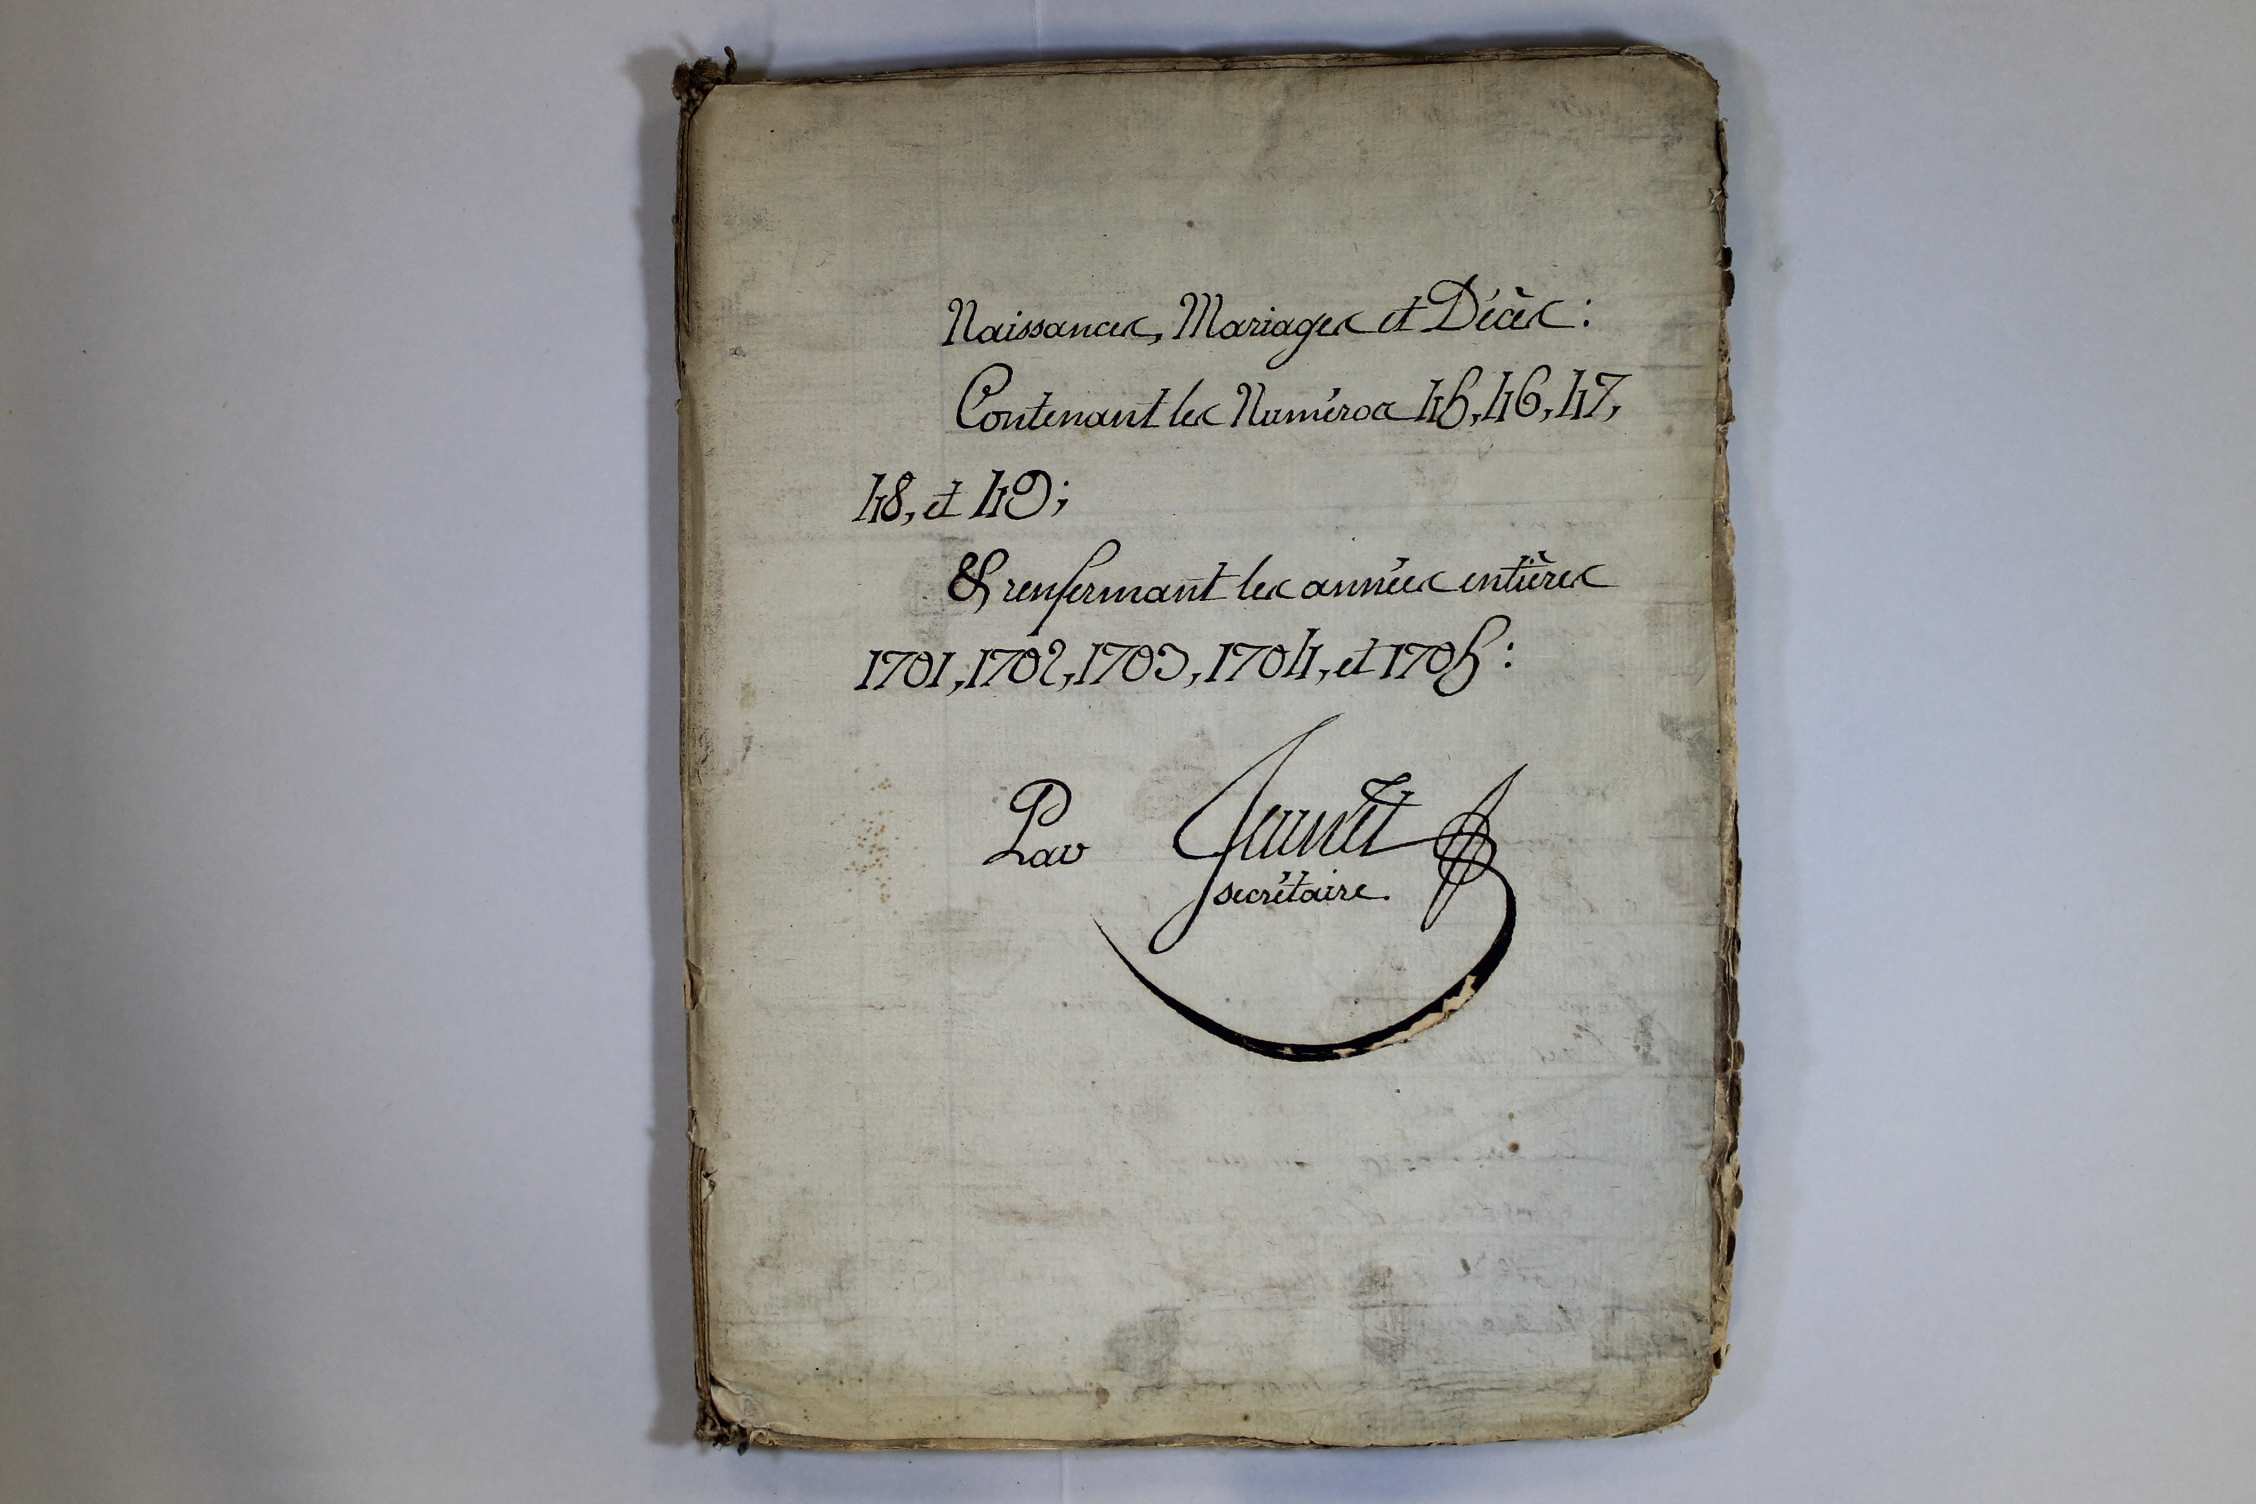 Naissances, Mariages et Décès :
Contenant les Numéros 45, 46, 47,
48, et 49 ;
& renfermant les années entières
1701, 1702, 1703, 1704, et 1705 :
Par
secrétaire.